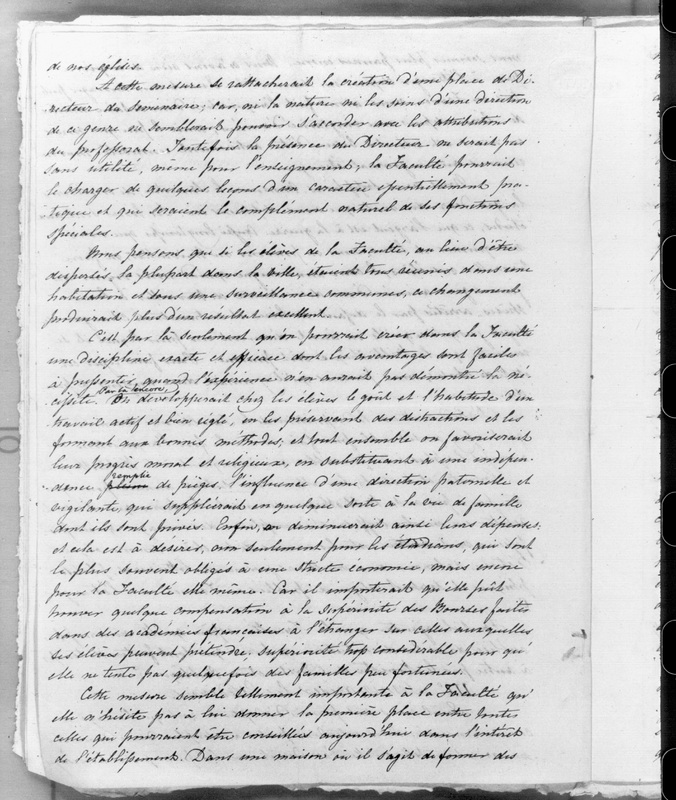 de nos églises.
A cette mesure se rattacherait la création d'une place de Di-
recteur du Seminaire; car, ni la nature ni les soins d'une direction
de ce genre ne semblerait pouvoir s'accorder avec les attributions
du professorat. Toutefois la présence du Directeur ne serait pas
sans utilité, même pour l'enseignement; la Faculté pourrait
le charger de quelques leçons d'un caractère essentiellement pra-
tique et qui seraient le complément naturel de ses fonctions
spéciales.
Nous pensons, que si les élèves de la Faculté, au lieu d'être
dispersés, la plupart dans la ville, étaient tous réunis dans une
habitation et sous une surveillance communes, ce changement
produirait plus d'un resultat excellent.
C'est par là seulement qu'on pourrait créer dans la Faculté
une discipline exacte et efficace dont les avantages sont faciles
à pressentir, quand l'expérience n'en aurait pas démontré la né-
cessité. Par là encore, On developperait chez les élèves le goût et l'habitude d'un
travail actif et bien réglé, en les préservant des distractions et les
formant aux bonnes méthodes, et tout ensemble on favoriserait
leur progrès moral et religieux, en substituant à une indépen-
dance remplie de pièges, l'influence d'une direction paternelle et
vigilante, qui suppléerait en quelque sorte à la vie de famille
dont ils sont privés. Enfin, on diminuerait ainsi leurs dépenses,
et cela est à désirer, non seulement pour les étudians, qui sont
le plus souvent obligés à une stricte économie, mais encore
pour la Faculté elle même. Car il importerait qu'elle pût
trouver quelque compensation à la supériorité des Bourses faites
dans des académies françaises à l'étranger sur celles auxquelles
ses élèves peuvent prétendre, supériorité trop considerable pour qu'
elle ne tente pas quelquefois des familles peu fortunées.
Cette mesure semble tellement importante à la Faculté qu'
elle n'hésite pas à lui donner la première place entre toutes
celles qui pourraient être conseillées aujourd'hui dans l'intérêt
de l'établissement. Dans une maison où il s'agit de former des